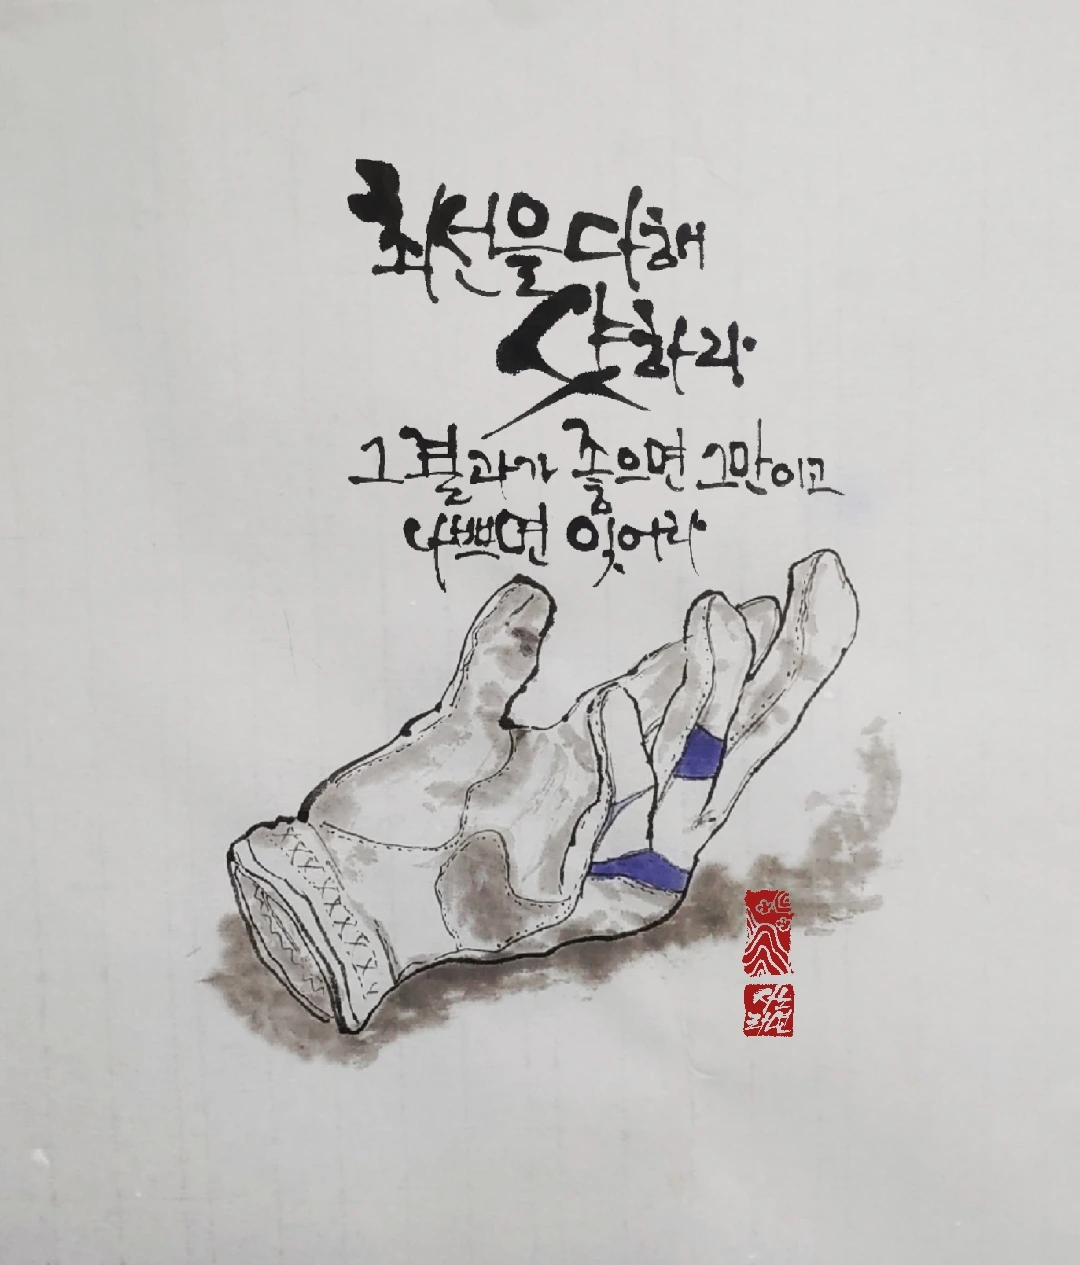 최선을 다해
샷하라
그 결과가 좋으면 그만이고
나쁘면 잊어라